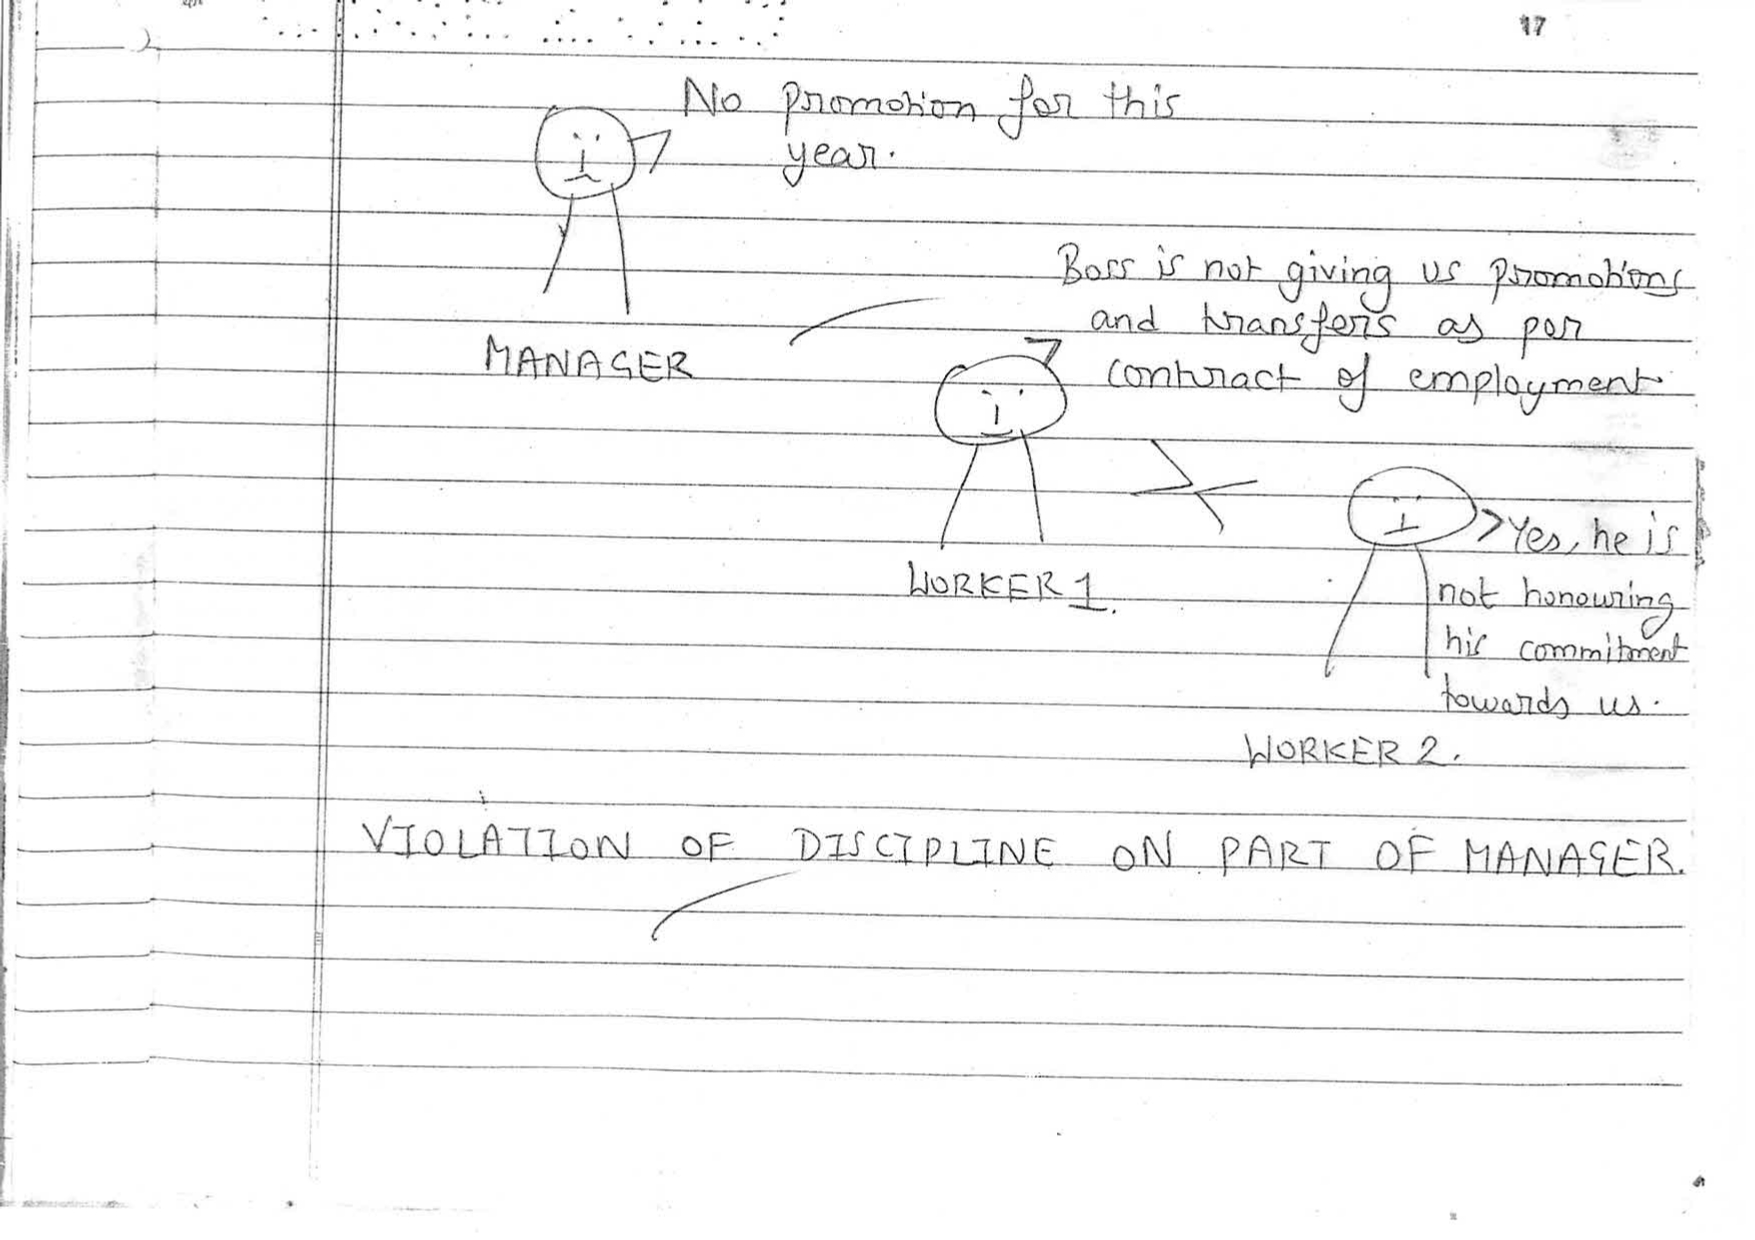 17
No promotion for this
year.
MANAGER
Boss is not giving us promotions
and transfers as per
contract of employment
WORKER 1.
Yes, he is
not honouring
his commitment
towards us.
WORKER 2.
VIOLATION OF DISCIPLINE ON PART OF MANAGER.